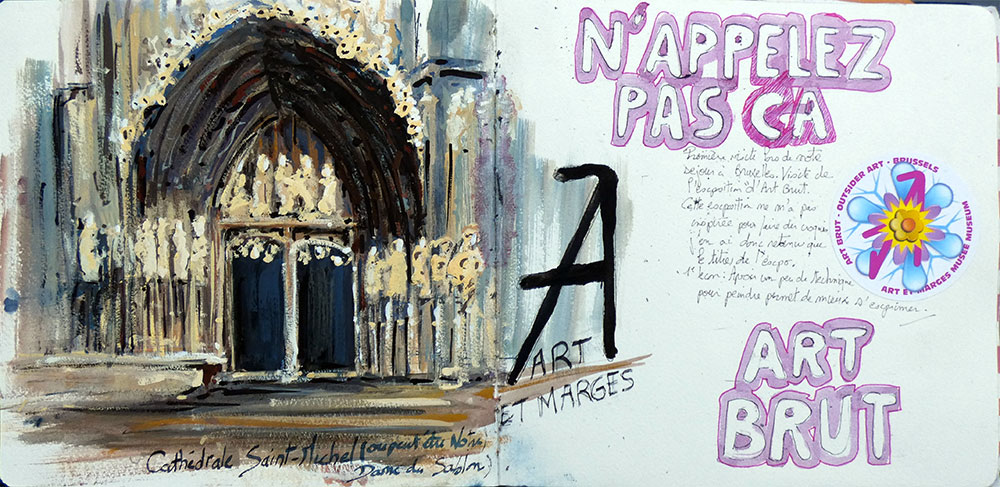 Cathédrale Saint-Michel (ou peut être Notre
Dame du Sablon)
A
ART
ET MARGES
N'APPELEZ
PAS CA
Première visite lors de notre
séjour à Bruxelles. Visite de
l'exposition d'Art Brut.
Cette exposition ne m'a pas
inspirée pour faire du
j'en ai donc retenu que
le titre de l'expo.
1e : Avoir un peu de technique
pour peindre permet de mieux s'exprimer.
ART BRUT · OUTSIDER ART · BRUSSELS
ART ET MARGES MUSÉE MUSEUM
ART
BRUT